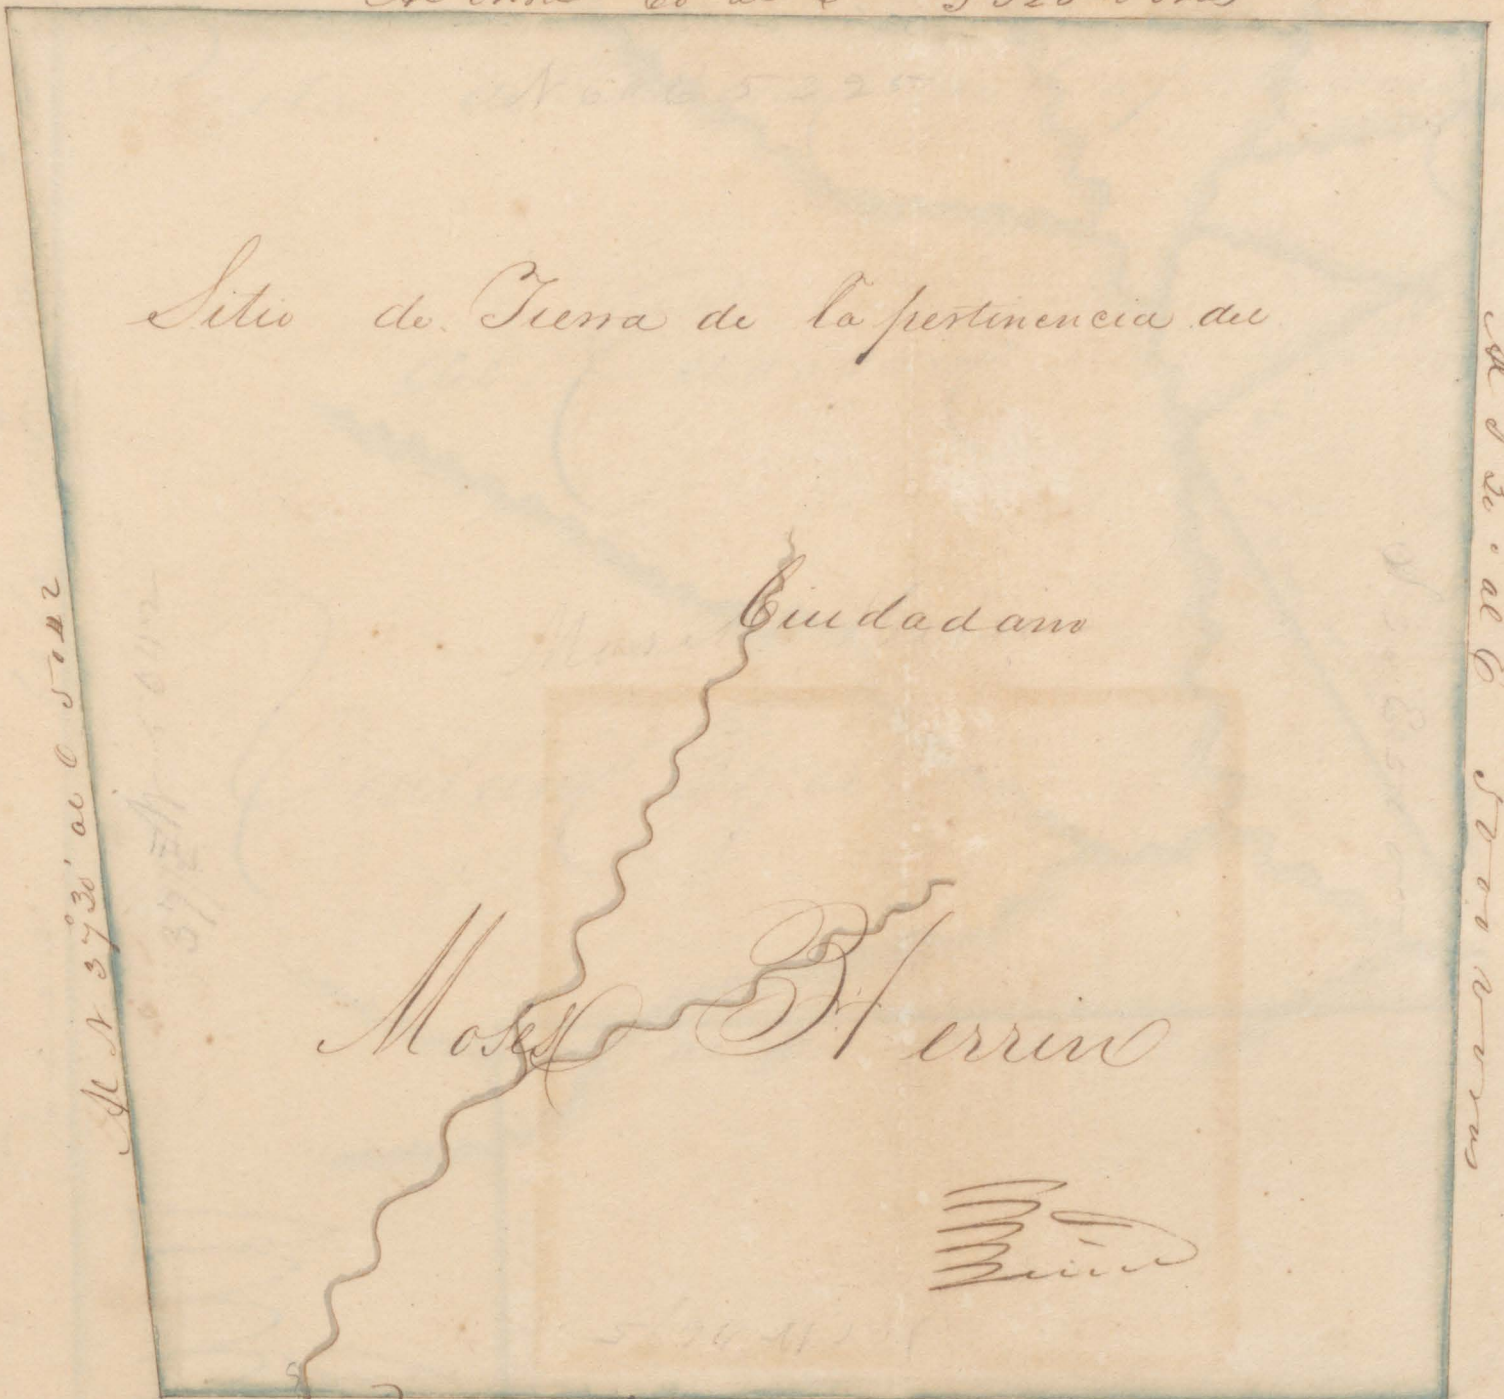 Sitio de Tierra de la pertinencia del
Ciudadano
Moses Herrin
Al N 37° 30' al O 5042
Al S 30° al E 5000 varas